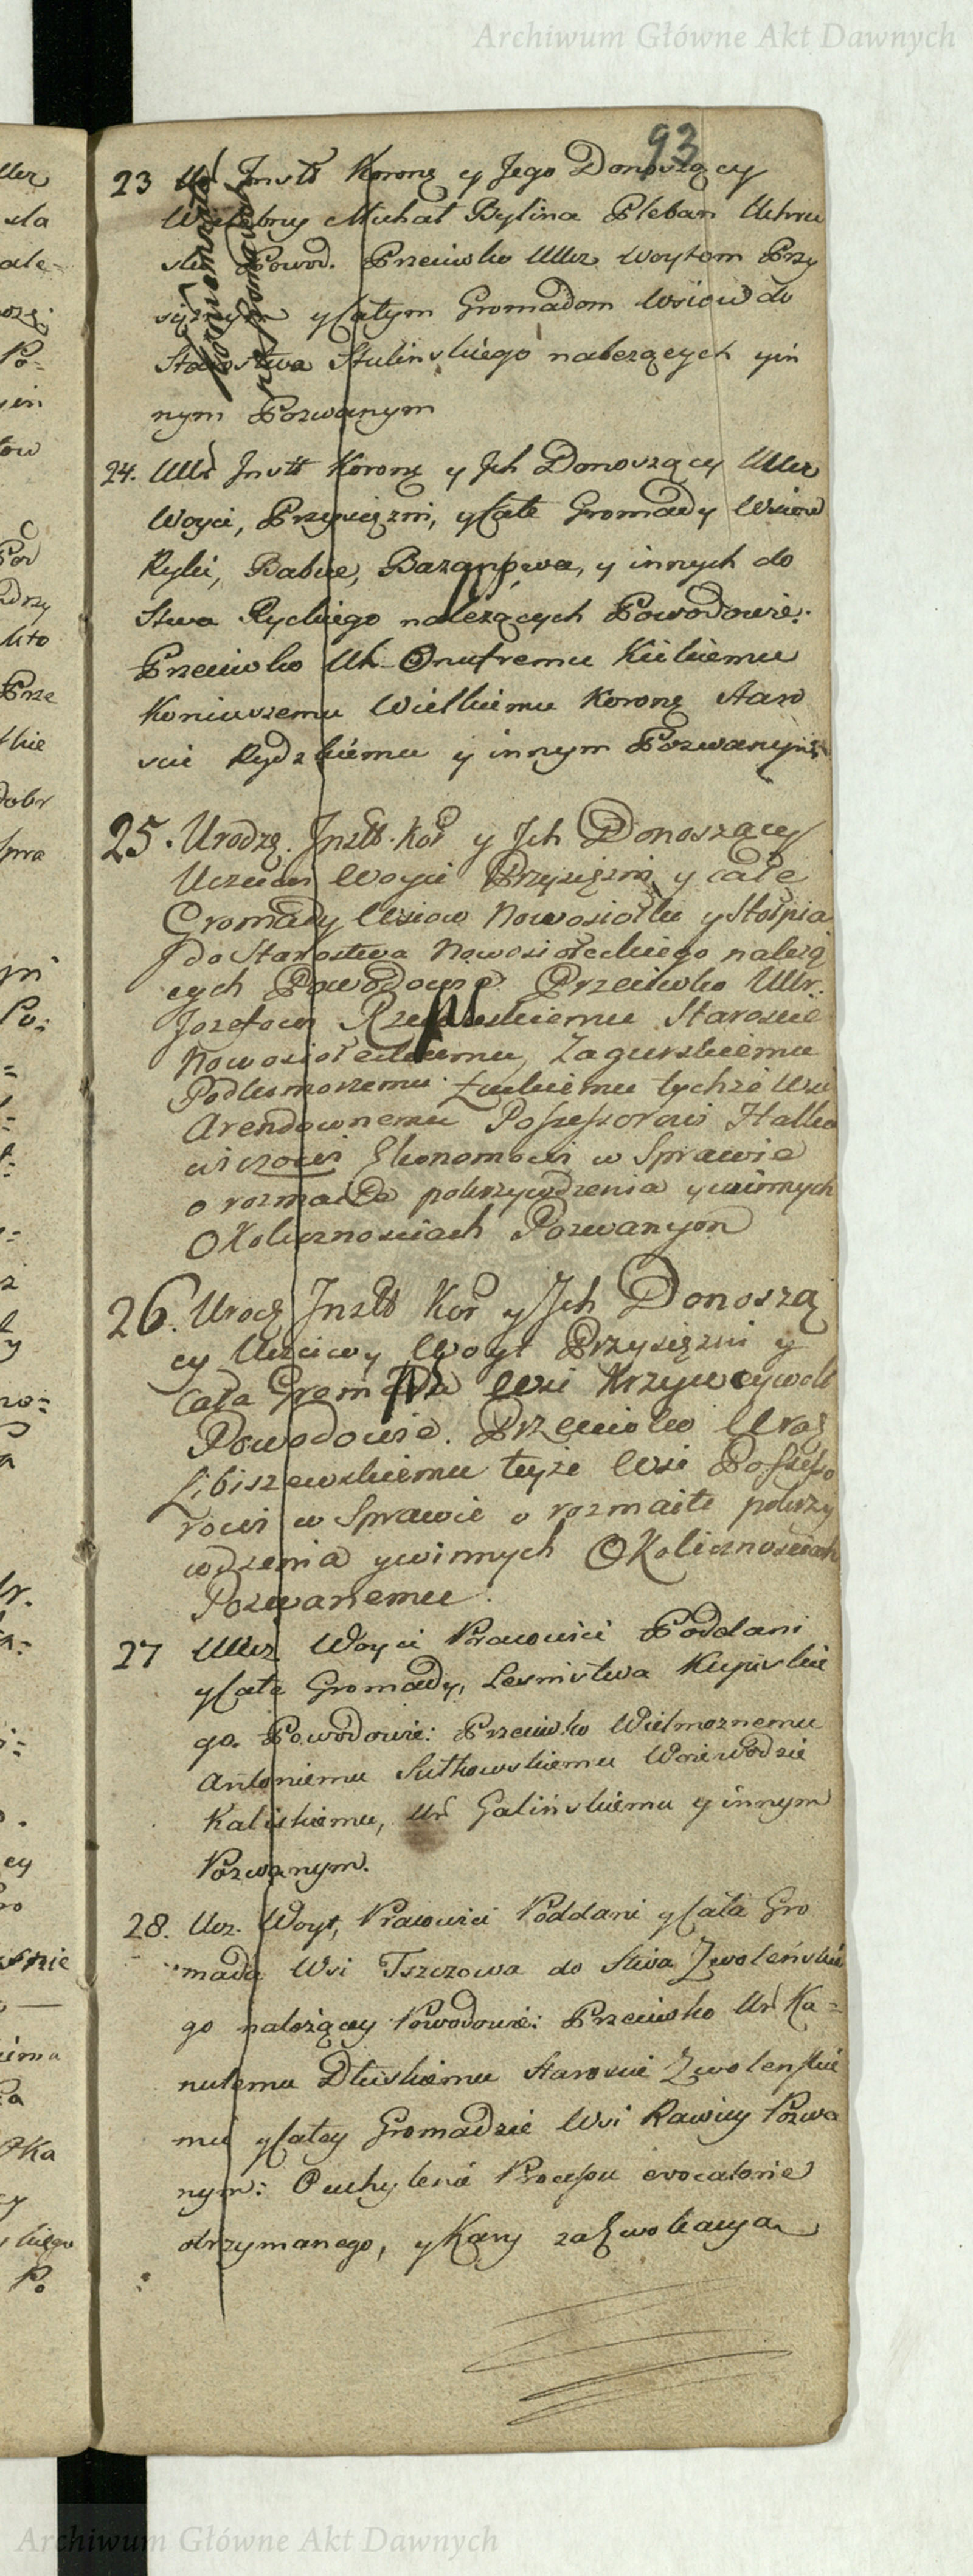 Archiwum Główne Akt Dawnych
93
23 Ur Instt Koroný y Jego Donoszący
Wielebny Michał Bylina Pleban Uhru
ski Powod. Przeciwko UUcz Woytom Przy
siężnym y Całym Gromadom Wsiow do
Starostwa Stulinskiego należących y in
nym Pozwanym
24. UUr Instt Koroný y Ich Donoszący UUcz
Woyci, Przysiężni, y Całe Gromady Wsiow
Ryki, Babice, y innych do
Stwa Ryckiego należących Powodowie.
Przeciwko Ur. Onufremu Kickiemu
Koniuszemu Wielkiemu Koroný Staro
scie Rydzkiemu y innym Pozwanym.
25. Urodzę. Instt. Kor y Ich Donoszący
Uczciwi Woyci Przysiężni y całe
Gromady Wsiow Nowosiołki y Stołpia
do Starostwa Nowosiołeckiego należą
cych Powodowie Przeciwko UUr.
Jozefowi Staroscie
Nowosiołeckiemu, Zagurskiemu
Podkomorzemu Łuckiemu tychże Wsi
Arendownemu Possessorowi Halko
wiczowi Ekonomowi w Sprawie
o rozmaite pokrzywdzenia y w innych
Okolicznosciach Pozwanym
26. Urodz Instt Kor y Ich Donoszą
cy Uczciwy Woyt Przysiężni y
Cała Gromada Wsi Krzywowoli
Powodowie. Przeciwko Urodz
Libiszewskiemu teyże Wsi Possesso
rowi w Sprawie o rozmaite pokrzy
wdzenia y w innych Okolicznosciach
Pozwanemu.
27 UUcz. Woyci Pracowici Poddani
y Całe Gromady, Lesnistwa Kupiskie
go. Powodowie: Przeciwko Wielmoznemu
Antoniemu Sułkowskiemu Woiewodzie
Kaliskiemu, Ur Galińskiemu y innym
Pozwanym.
28. Ucz. Woyt, Pracowici Poddani y Cała Gro
mada Wsi Tszczowa do Stwa Zwoleńskie
go należący Powodowie: Przeciwko Ur Ka=
nutemu Dłuskiemu Staroscie Zwolenskie
mu y Całey Gromadzie Wsi Rawicy Pozwa
nym: O uchylenie Processu evocatorie
otrzymanego, y Kary za Ewokacyą
Archiwum Główne Akt Dawnych